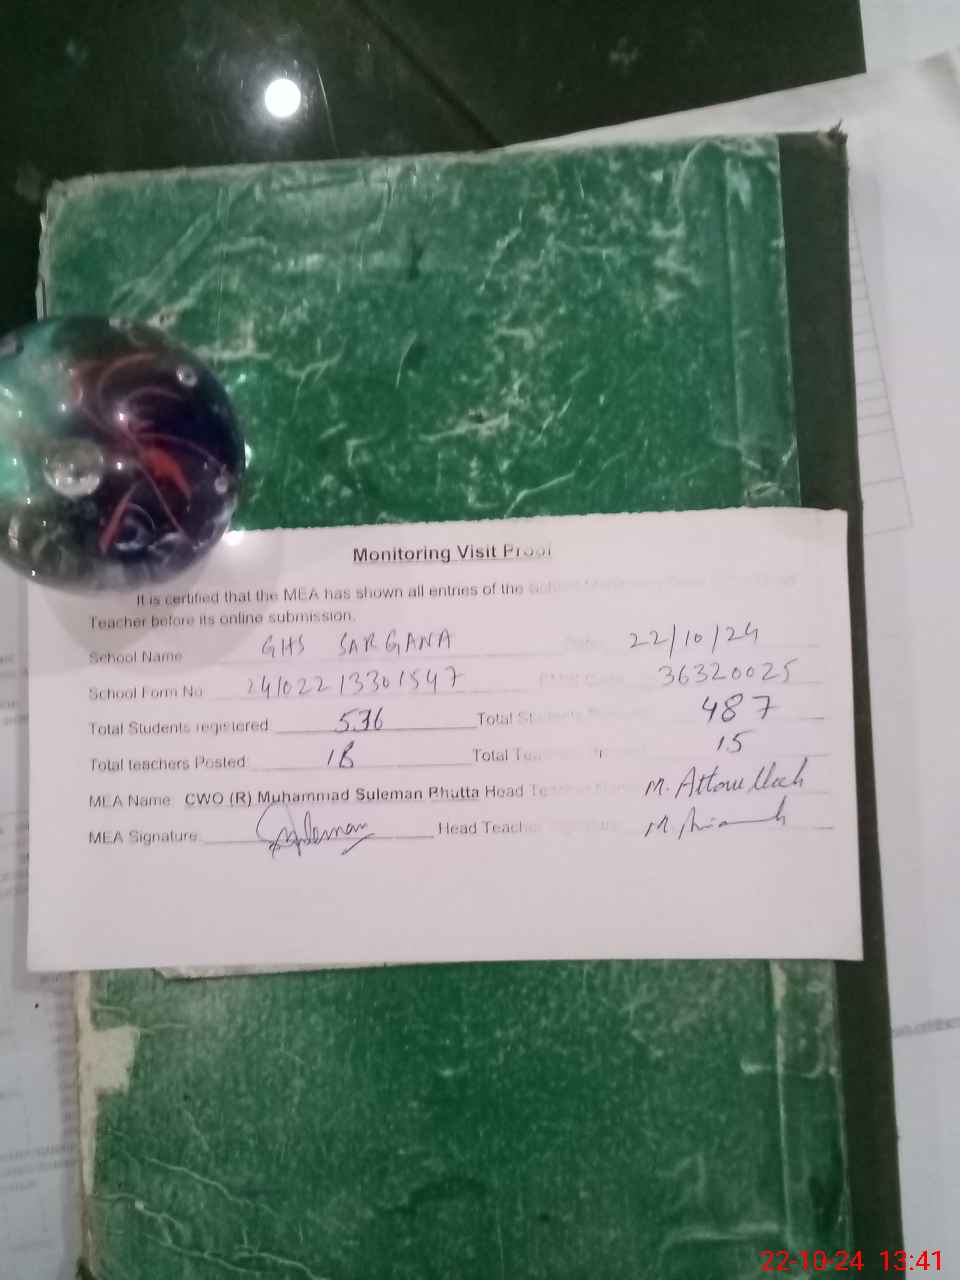 Monitoring Visit Proof
It is certified that the MEA has shown all entries of the
Teacher before its online submission.
School Name GHS SARGANA 22/10/24
School Form No 24102213301547 36320025
Total Students registered 536 Total Students 487
Total teachers Posted 18 Total 15
MEA Name CWO (R) Muhammad Suleman Bhutta Head Teacher Name M. Attaullah
MEA Signature Suleman Head Teacher Signature
22-10-24 13:41